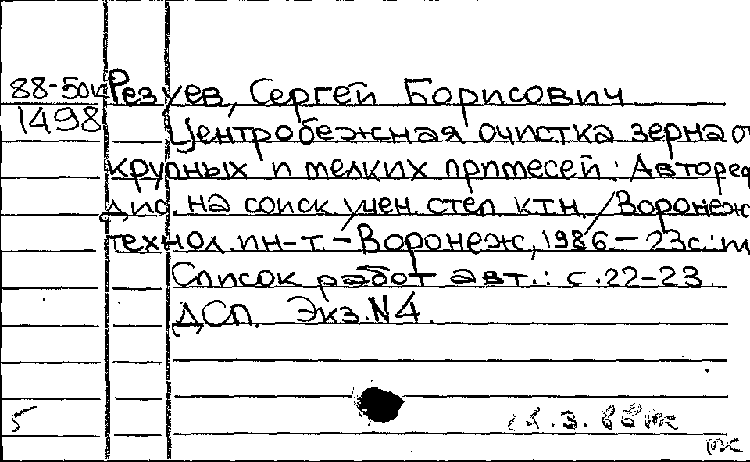 88-50к Резуев, Сергей Борисович
1498
Центробежная очистка зерна от
крупных и мелких примесей: Автореф
дис. на соиск. учен. степ. к.т.н / Воронеж
технол. ин-т. - Воронеж, 1986 - 23с.:и
Список работ авт.: с.22-23
ДСП. Экз.N4.
5